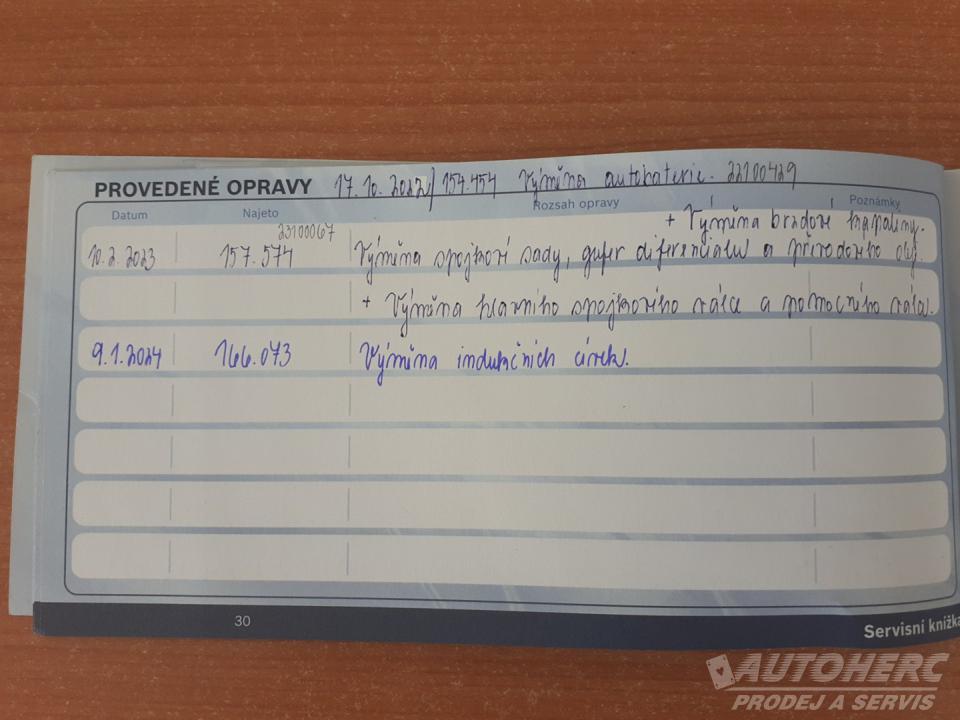 PROVEDENÉ OPRAVY 17.10.2022/ 154.454 Výměna autobaterie. 22100429
Datum Najeto Rozsah opravy Poznámky
23100067 + Výměna brzdové kapaliny.
10.2.2023 157.574 Výměna spojkové sady, gufer diferenciálu a převodového olej.
+ Výměna hlavního spojkového válce a pomocného válce.
9.1.2024 166.073 Výměna indukčních cívek.
30 Servisní knížka
AUTOHERC
PRODEJ A SERVIS